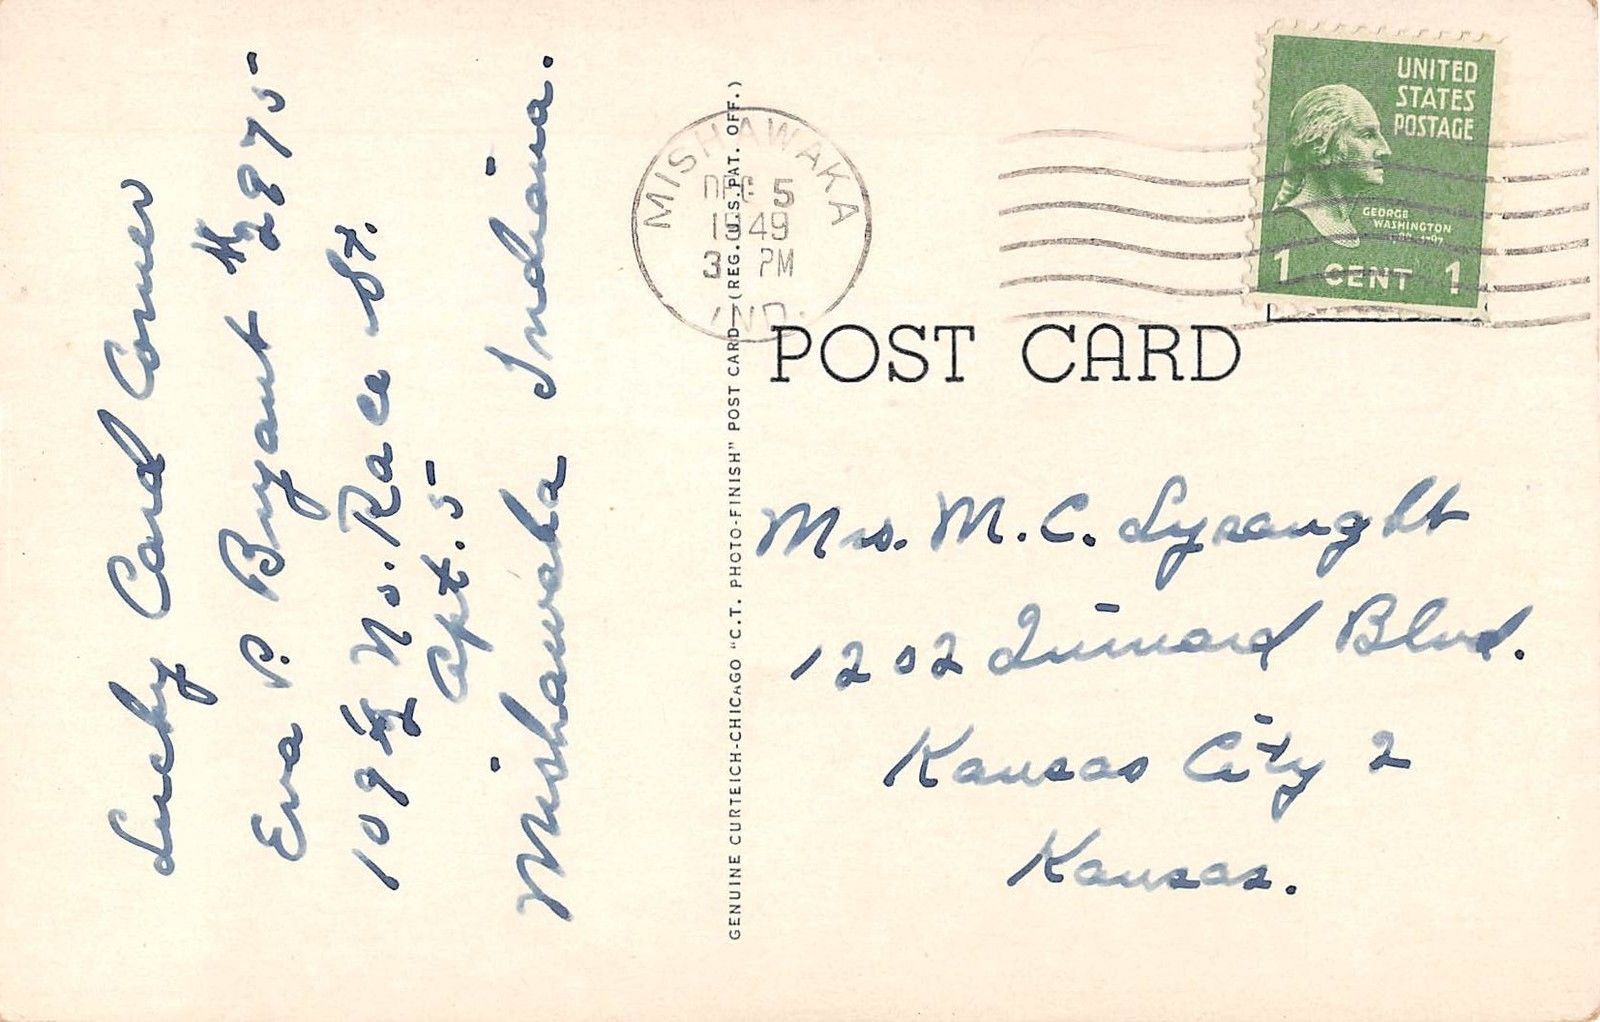 Lucky Card Corner
Eva P. Bryant #2875
109½ No. Race St.
Apt. 5
Mishawaka Indiana.
GENUINE CURTEICH-CHICAGO "C.T. PHOTO-FINISH" POST CARD (REG. U.S. PAT. OFF.)
MISHAWAKA
DEC 5
1949
3 PM
IND.
UNITED
STATES
POSTAGE
GEORGE
WASHINGTON
1 CENT 1
POST CARD
Mrs. M. C. Lysaught
1202 Blvd.
Kansas City 2
Kansas.